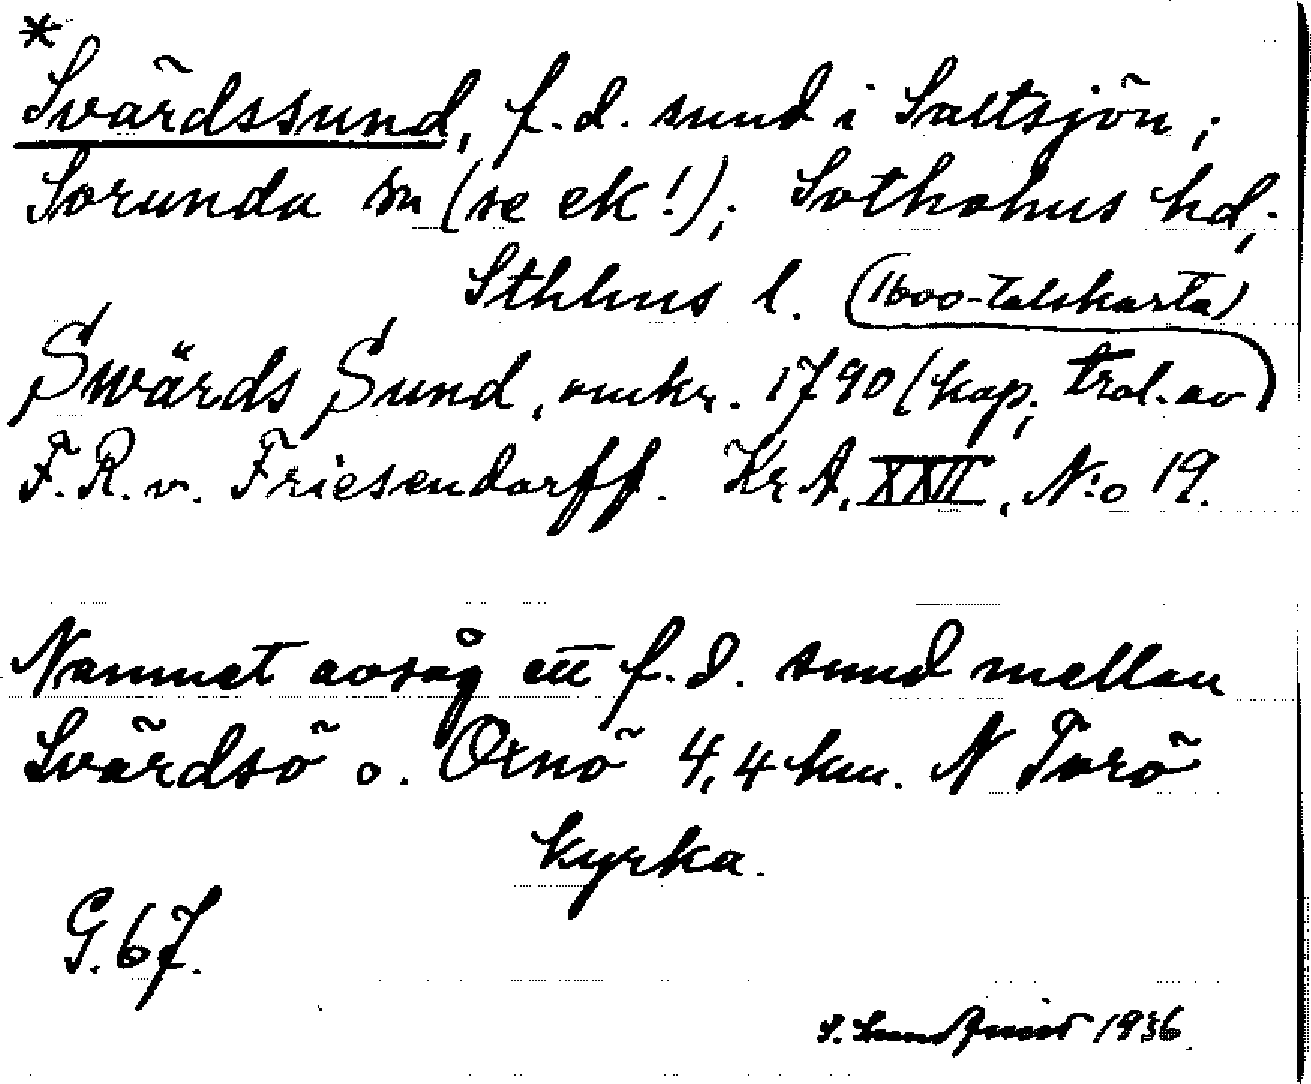 *
Svärdssund, f.d. sund i Saltsjön;
Sorunda sn (se ek!); Sotholms hd,
Sthlms l. (1600-talskarta)
Swärds Sund, omkr. 1790 (kop., trol. av
F.R. v. Friesendorff. Kr.A. XXII, N:o 19.
Namnet avsåg ett f.d. sund mellan
Svärdsö o. Ornö 4,4 km. N Torö
kyrka.
G.67.
S. Sundquist 1936